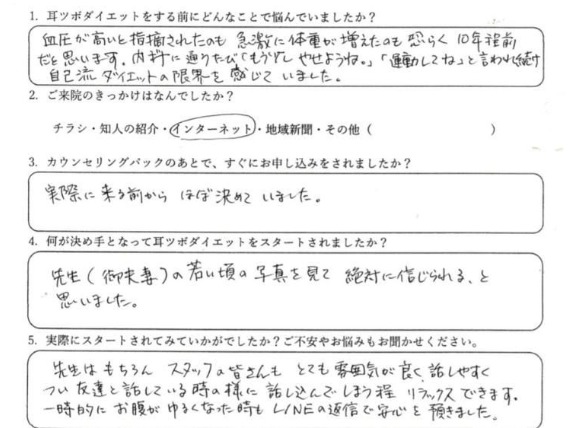 1. 耳ツボダイエットをする前にどんなことで悩んでいましたか？
血圧が高いと指摘されたのも 急激に体重が増えたのも 恐らく 10年程前
だと思います。内科に通うたび「もう少しやせようね。」「運動してね」と言われ続け
自己流ダイエットの限界を感じていました。
2. ご来院のきっかけはなんでしたか？
チラシ・知人の紹介・インターネット・地域新聞・その他（　　　　　　　）
3. カウンセリングパックのあとで、すぐにお申し込みをされましたか？
実際に来る前から ほぼ決めていました。
4. 何が決め手となって耳ツボダイエットをスタートされましたか？
先生（御夫妻）の若い頃の写真を見て 絶対に信じられる、と
思いました。
5. 実際にスタートされてみていかがでしたか？ご不安やお悩みもお聞かせください。
先生はもちろん スタッフの皆さんも とても雰囲気が良く、話しやすく
つい友達と話している時の様に 話し込んでしまう程 リラックスできます。
一時的に お腹がゆるくなった時も LINEの返信で安心を頂きました。